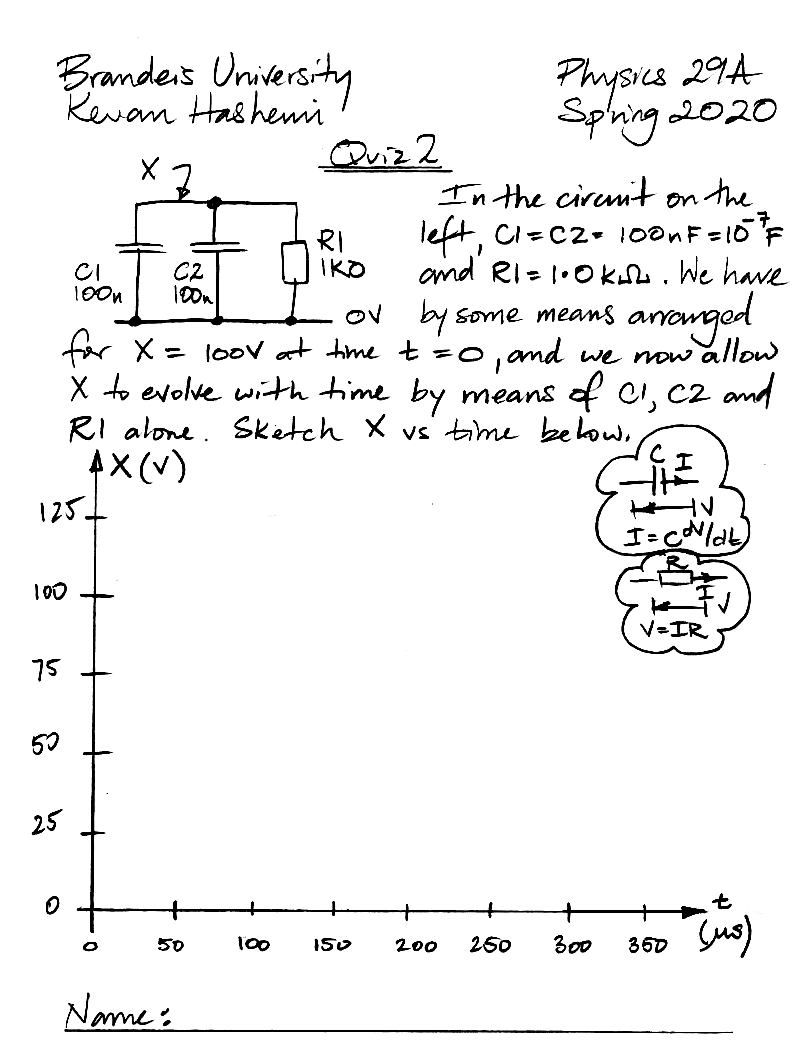 Brandeis University
Kevan Hashemi
Physics 29A
Spring 2020
Quiz 2
X
C1
100n
C2
100n
R1
1K0
0V
In the circuit on the
left, C1 = C2 = 100nF = 10^-7 F
and R1 = 1.0 kΩ. We have
by some means arranged
for X = 100V at time t = 0, and we now allow
X to evolve with time by means of C1, C2 and
R1 alone. Sketch X vs time below.
X (V)
C I
V
I = C dV/dt
R
I V
V = IR
125
100
75
50
25
0
0 50 100 150 200 250 300 350
t
(μs)
Name: